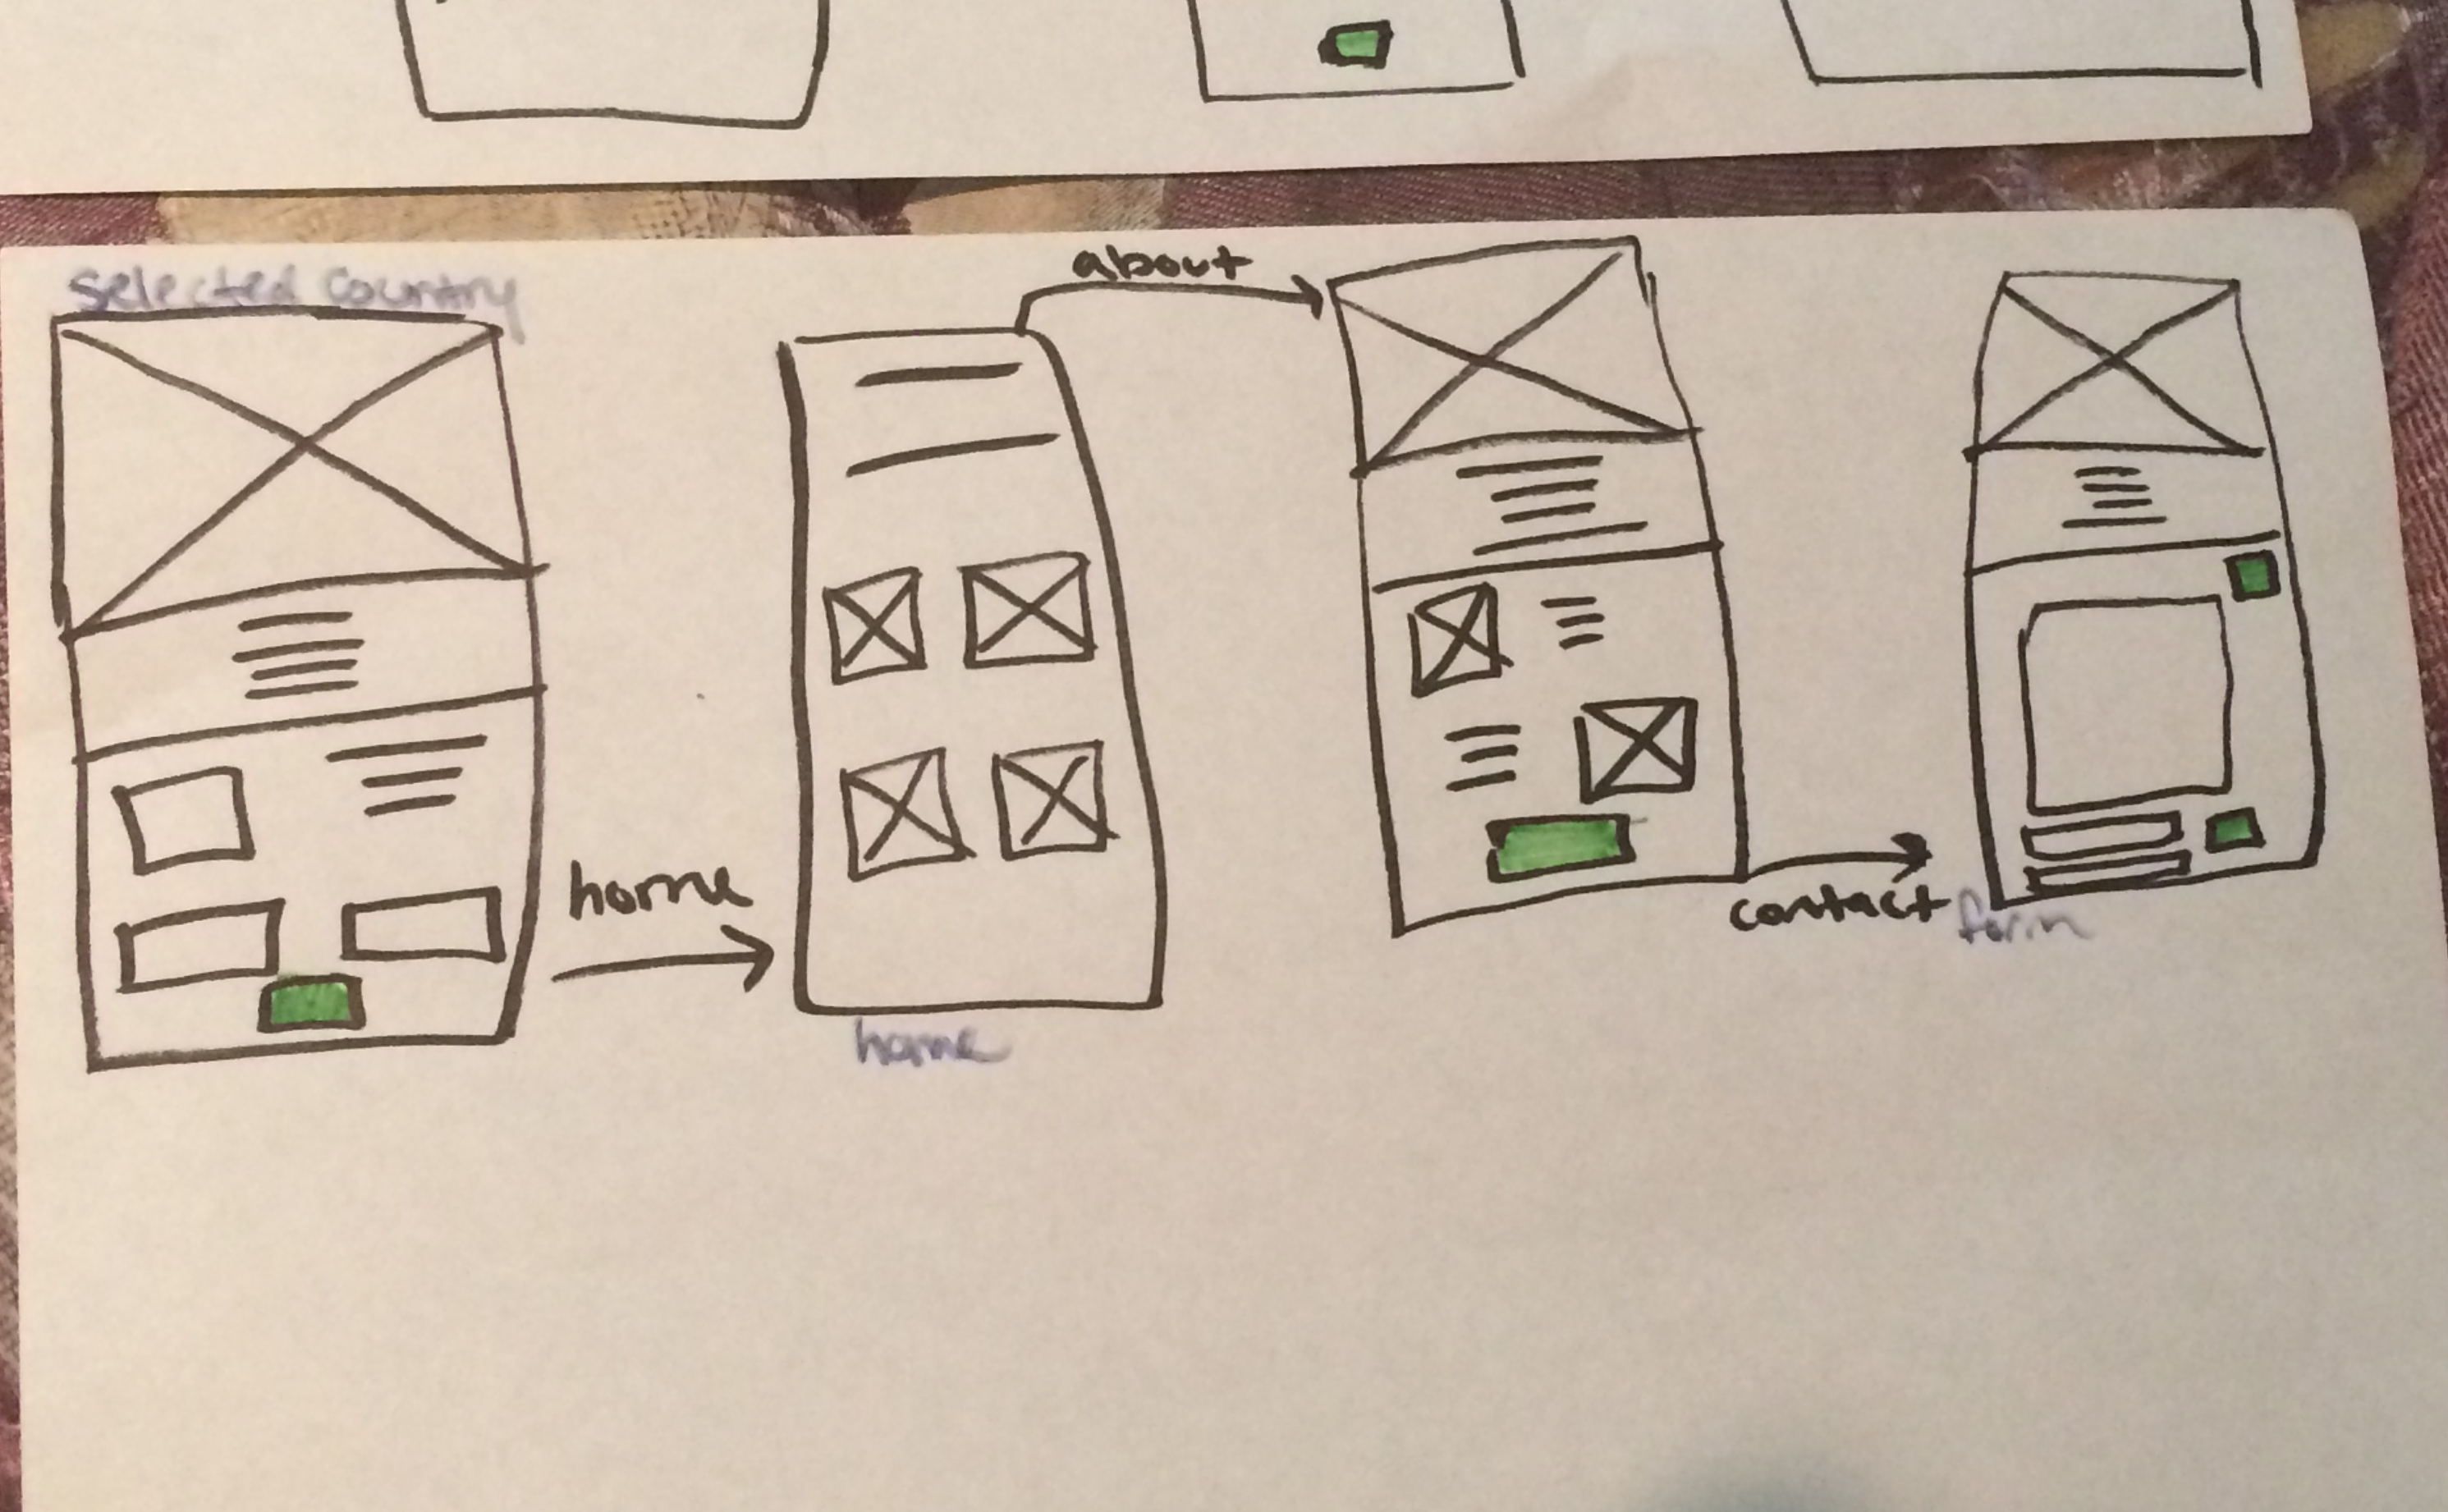 selected country
about
home
home
contact form